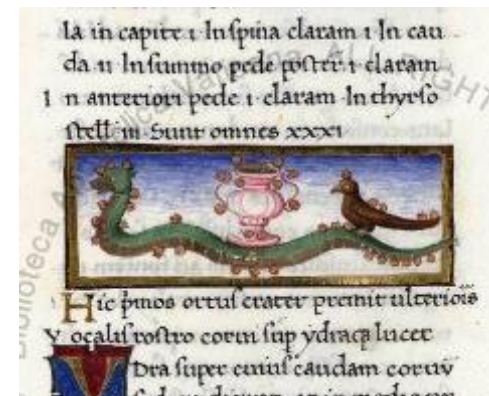 la in capite ı In spina claram ı In cau
da ıı In summo pede poster ı claram
I n anteriori pede ı claram In thyrso
stell iii Sunt omnes xxxı
Hic pmos ortus crater premit ulteriois
V ocalis rostro corui sup ydraq lucet
Dra super cuius caudam coruu
Biblioteca
ALL RIGHT